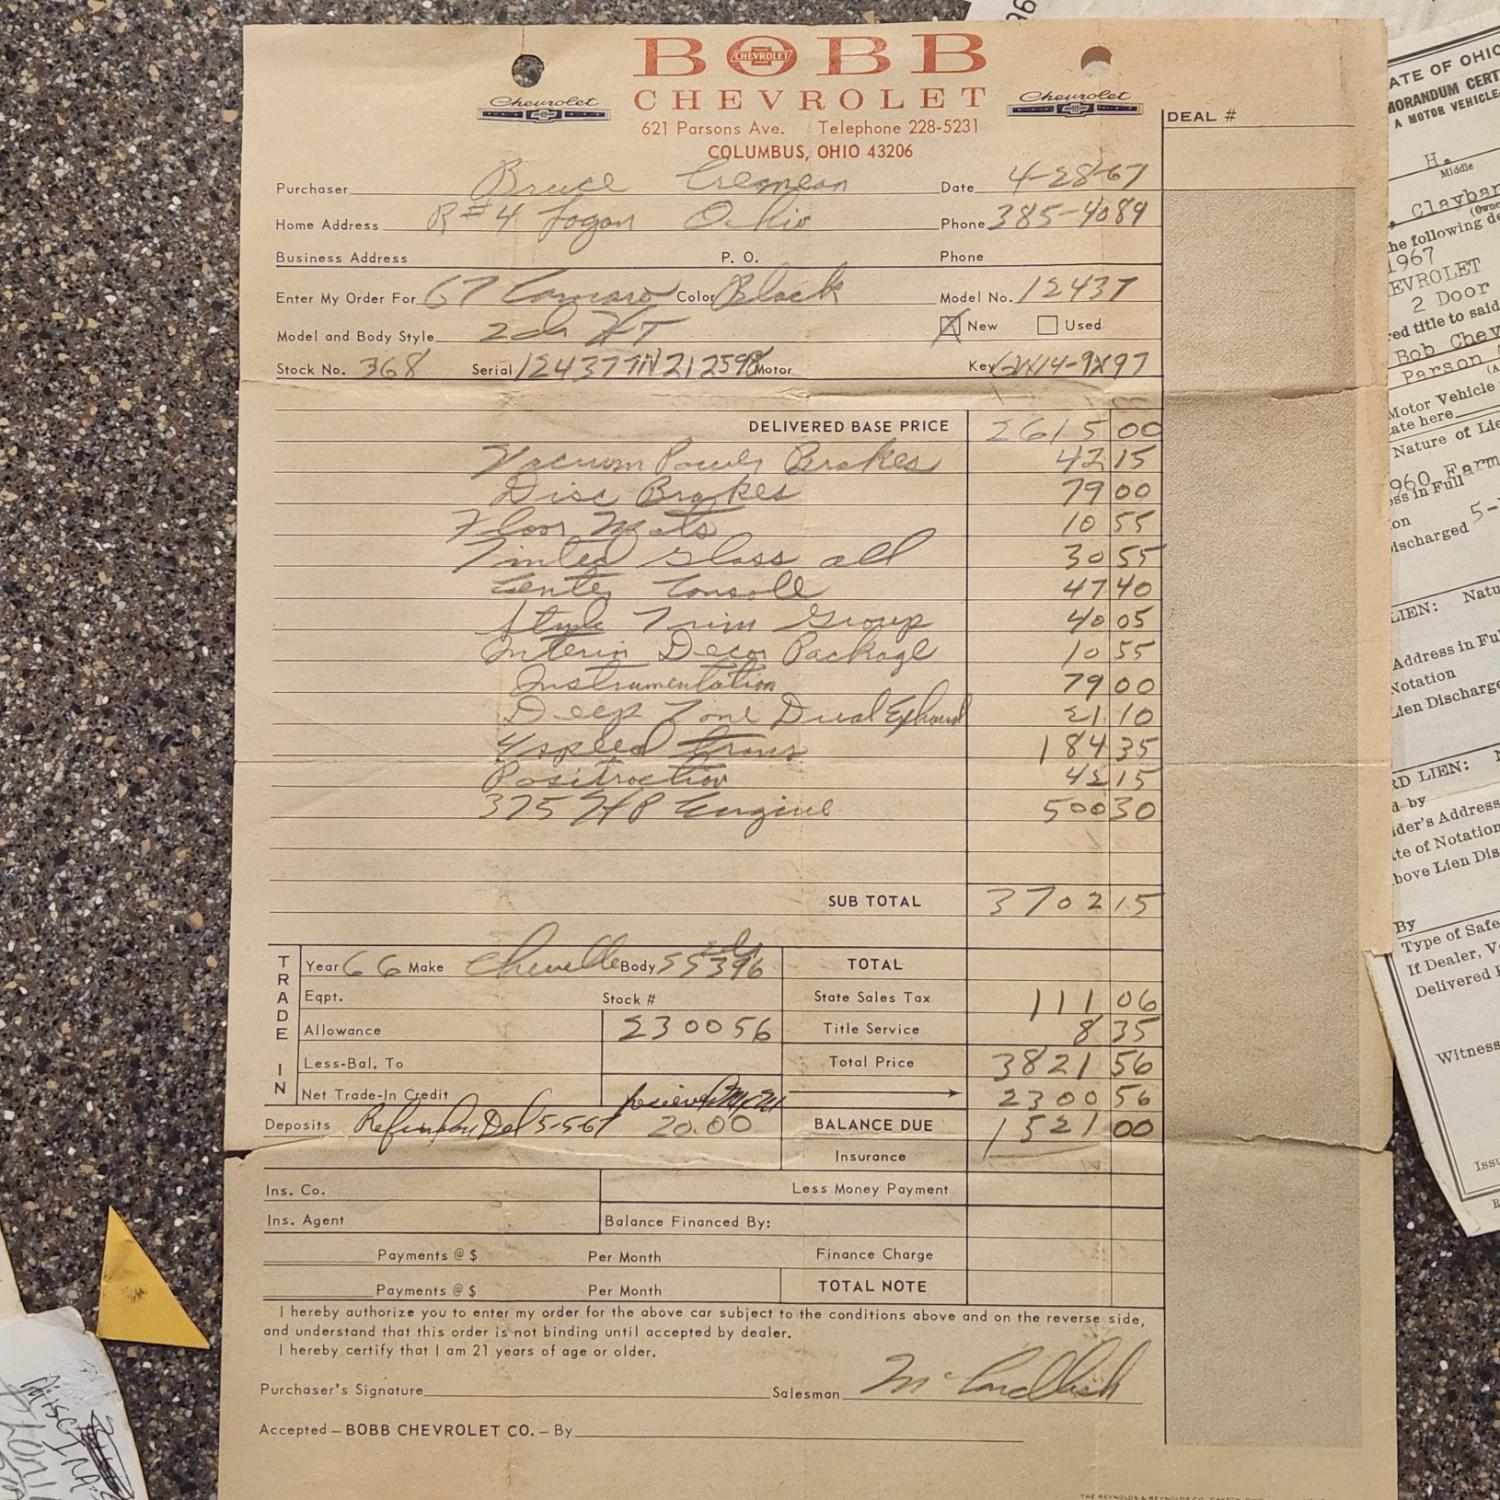 BOBB
CHEVROLET
CHEVROLET
Chevrolet
Chevrolet
621 Parsons Ave. Telephone 228-5231
COLUMBUS, OHIO 43206
DEAL #
Purchaser Bruce Cremean Date 4-28-67
Home Address R#4 Logan Ohio Phone 385-4089
Business Address P. O. Phone
Enter My Order For 67 Camaro Color Black Model No. 12437
Model and Body Style 2dr HT X New Used
Stock No. 368 Serial 124377N212598 Motor Key
DELIVERED BASE PRICE 2615 00
Vacuum Power Brakes 42 15
Disc Brakes 79 00
Floor Mats 10 55
Tinted Glass all 30 55
Center Console 47 40
Style Trim Group 40 05
Interior Decor Package 10 55
Instrumentation 79 00
Deep Tone Dual Exhaust 21 10
4 speed trans 184 35
Positraction 42 15
375 HP Engine 500 30
SUB TOTAL 3702 15
TRADE IN
Year 66 Make Chevelle Body SS 396 TOTAL
Eqpt. Stock # State Sales Tax 111 06
Allowance 2300 56 Title Service 8 35
Less-Bal. To Total Price 3821 56
Net Trade-In Credit 2300 56
Deposits 5-5-67 20.00 BALANCE DUE 1521 00
Insurance
Ins. Co. Less Money Payment
Ins. Agent Balance Financed By:
Payments @ $ Per Month Finance Charge
Payments @ $ Per Month TOTAL NOTE
I hereby authorize you to enter my order for the above car subject to the conditions above and on the reverse side,
and understand that this order is not binding until accepted by dealer.
I hereby certify that I am 21 years of age or older.
Purchaser's Signature Salesman McCandlish
Accepted – BOBB CHEVROLET CO. – By
ATE OF OHIO
MORANDUM CERT
A MOTOR VEHICLE
H.
Middle
Claybar
(Owne
he following de
1967
EVROLET
2 Door
ed title to said
Bob Chev
Parson
Motor Vehicle
ate here
Nature of Lie
960 Farm
ss in Full
on
ischarged 5-
LIEN: Natu
Address in Fu
Notation
Lien Discharge
RD LIEN:
d by
der's Address
te of Notation
bove Lien Dis
By
Type of Safe
If Dealer, V
Delivered
Witness
Issu